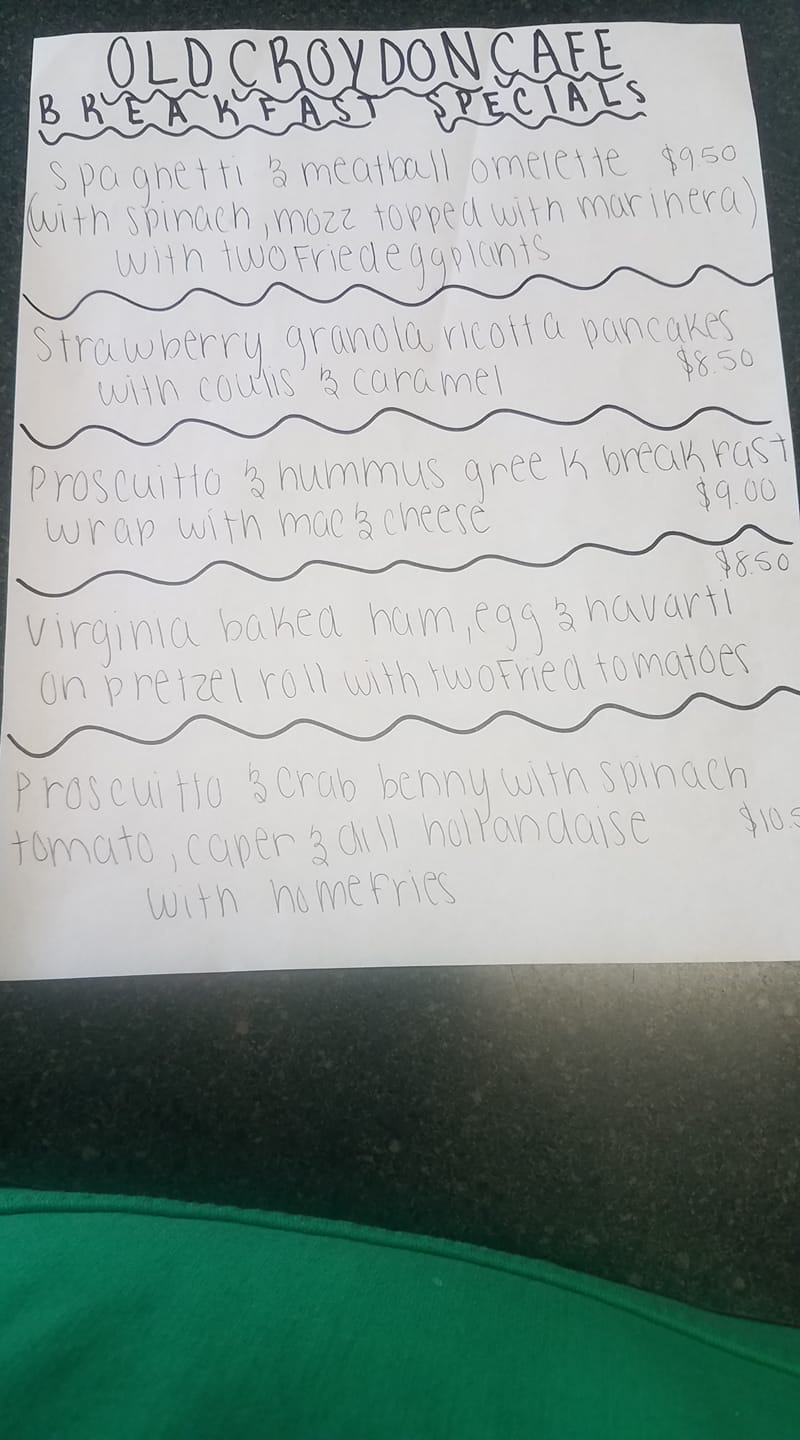 OLD CROYDON CAFE
BREAKFAST SPECIALS
Spaghetti & meatball omelette $9.50
(with spinach, mozz topped with marinera)
with two fried eggplants
Strawberry granola ricotta pancakes
with coulis & caramel $8.50
Proscuitto & hummus greek breakfast
wrap with mac & cheese $9.00
$8.50
Virginia baked ham, egg & havarti
on pretzel roll with two fried tomatoes
Proscuitto & crab benny with spinach
tomato, caper & dill hollandaise
with homefries